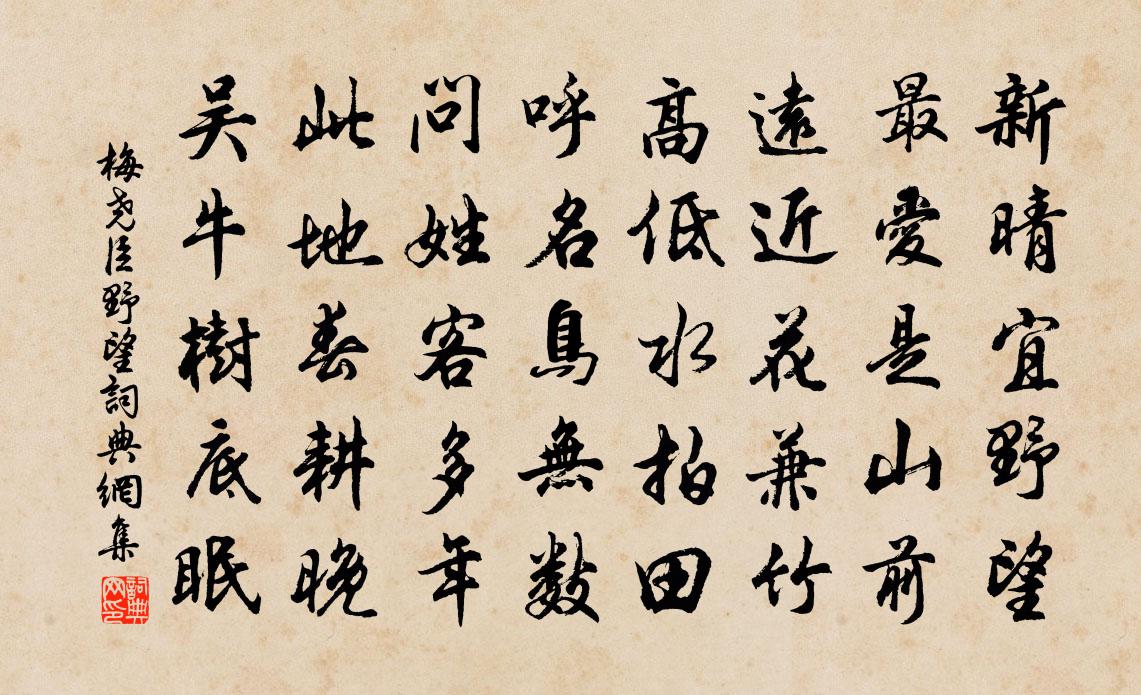 新晴宜野望
最愛是山前
遠近花兼竹
高低水拍田
呼名鳥無數
問姓客多年
此地春耕晚
吳牛樹底眠
梅堯臣野望詞典網集
詞典網印